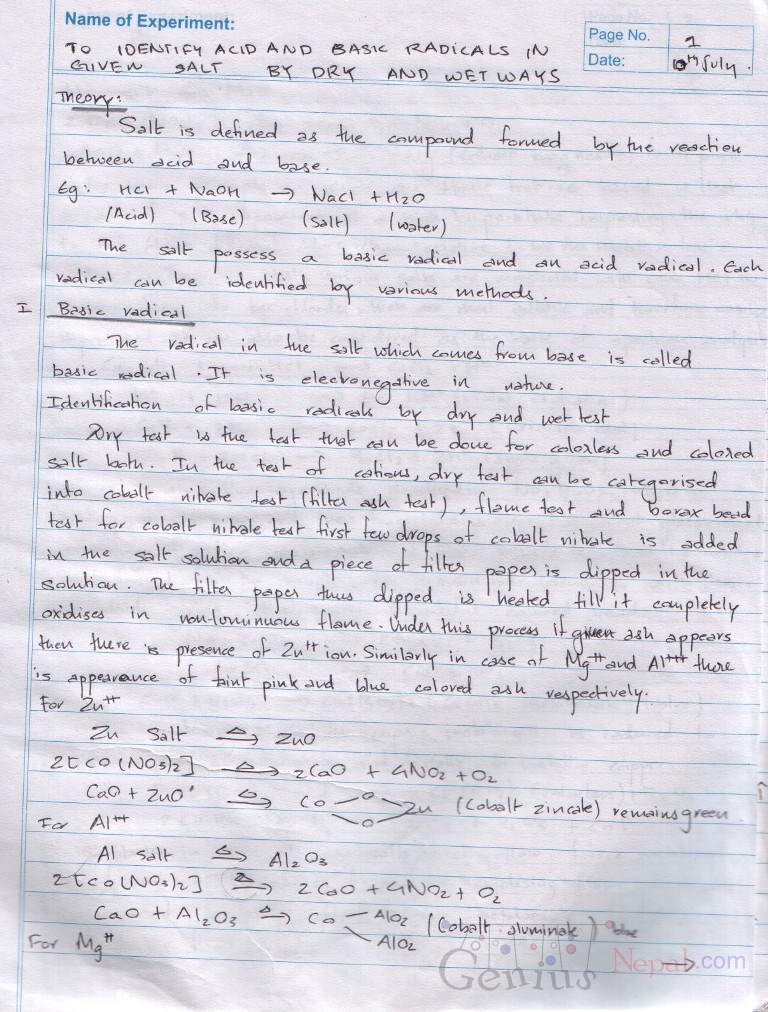 Name of Experiment:
Page No. 1
TO IDENTIFY ACID AND BASIC RADICALS IN
GIVEN SALT BY DRY AND WET WAYS
Date: 10th July.
Theory:
Salt is defined as the compound formed by the reaction
between acid and base.
Eg: HCl + NaOH → NaCl + H2O
(Acid) (Base) (Salt) (water)
The salt possess a basic radical and an acid radical. Each
radical can be identified by various methods.
I Basic radical
The radical in the salt which comes from base is called
basic radical. It is electronegative in nature.
Identification of basic radicals by dry and wet test
Dry test is the test that can be done for colorless and colored
salt both. In the test of cations, dry test can be categorised
into cobalt nitrate test (filter ash test), flame test and borax bead
test for cobalt nitrate test first few drops of cobalt nitrate is added
in the salt solution and a piece of filter paper is dipped in the
solution. The filter paper thus dipped is heated till it completely
oxidises in non-luminuous flame. Under this process if green ash appears
then there is presence of Zn++ ion. Similarly in case of Mg++ and Al+++ there
is appearance of faint pink and blue colored ash respectively.
For Zn++
Zn Salt △→ ZnO
2[CO(NO3)2] △→ 2CaO + 4NO2 + O2
CaO + ZnO △→ Co O O Zn (Cobalt zincate) remains green
For Al++
Al Salt △→ Al2O3
2[Co(NO3)2] △→ 2CaO + 4NO2 + O2
CaO + Al2O3 △→ Co AlO2 (Cobalt aluminate) blue
AlO2
For Mg++ →
Genius Nepal.com